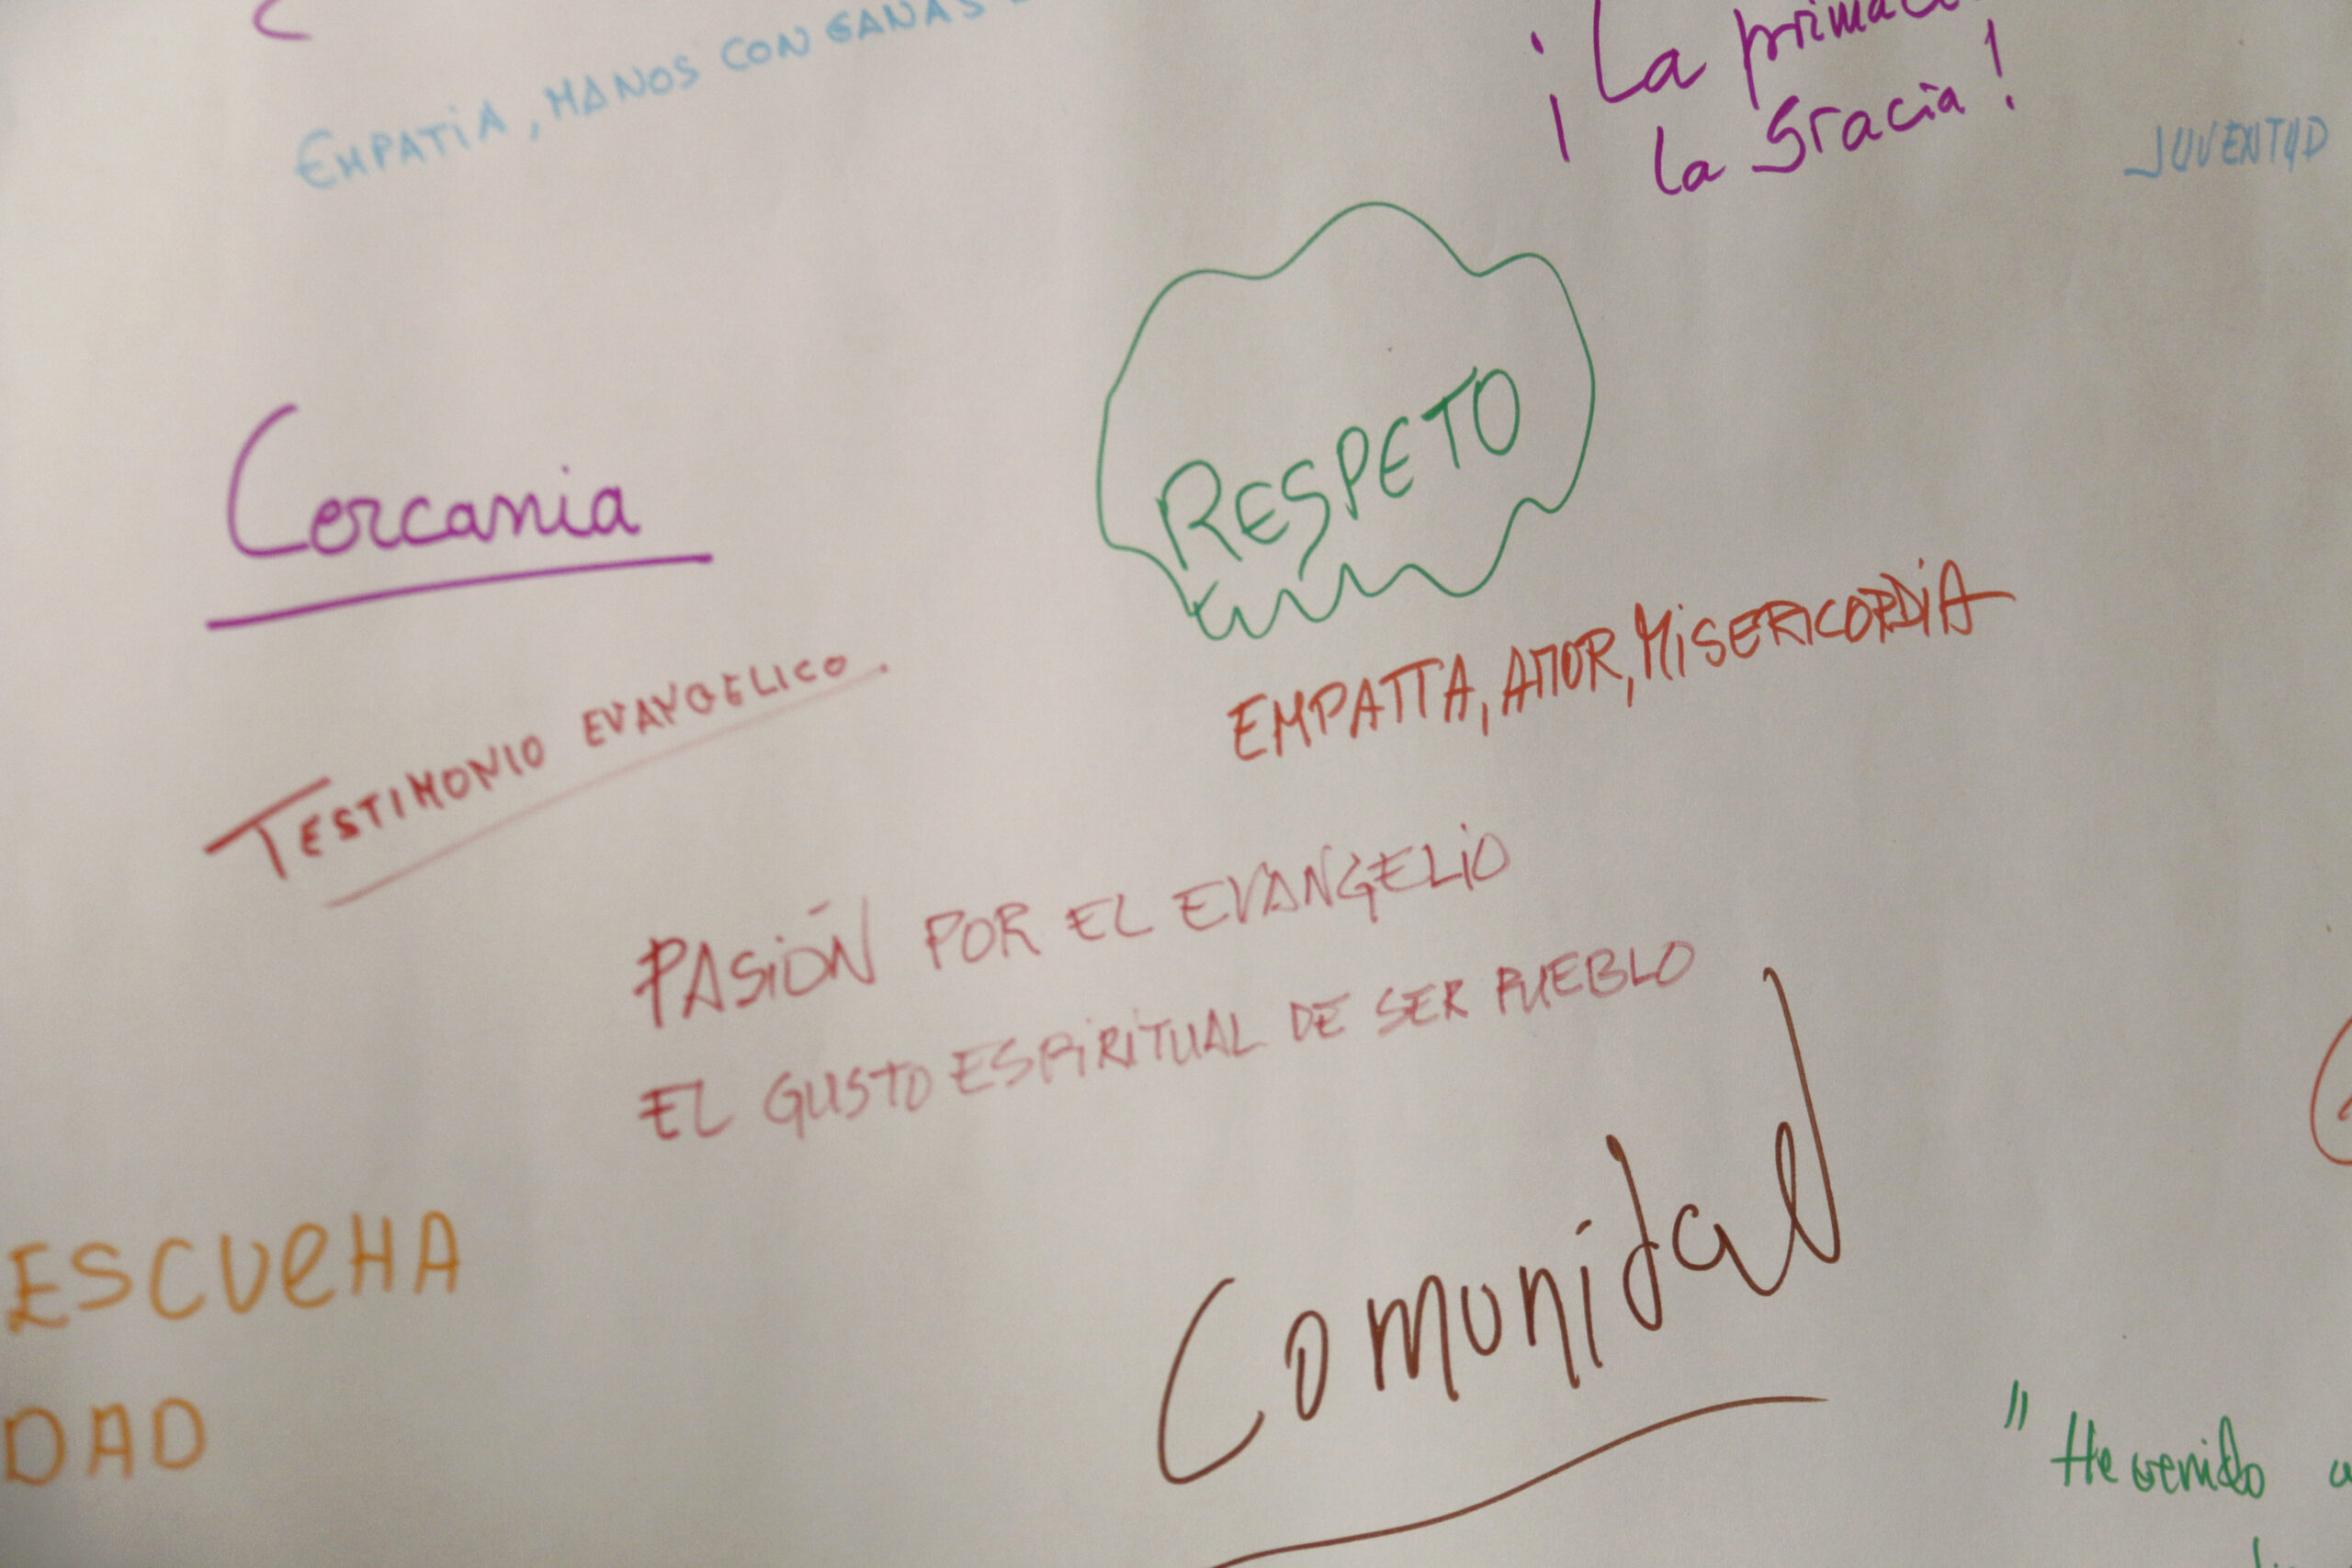 EMPATIA, MANOS CON GANAS
¡La
la Gracia!
JUVENTUD
RESPETO
Cercania
EMPATIA, AMOR, MISERICORDIA
TESTIMONIO EVANGELICO.
PASIÓN POR EL EVANGELIO
EL GUSTO ESPIRITUAL DE SER PUEBLO
ESCUCHA
Comunidad
DAD
"He venido